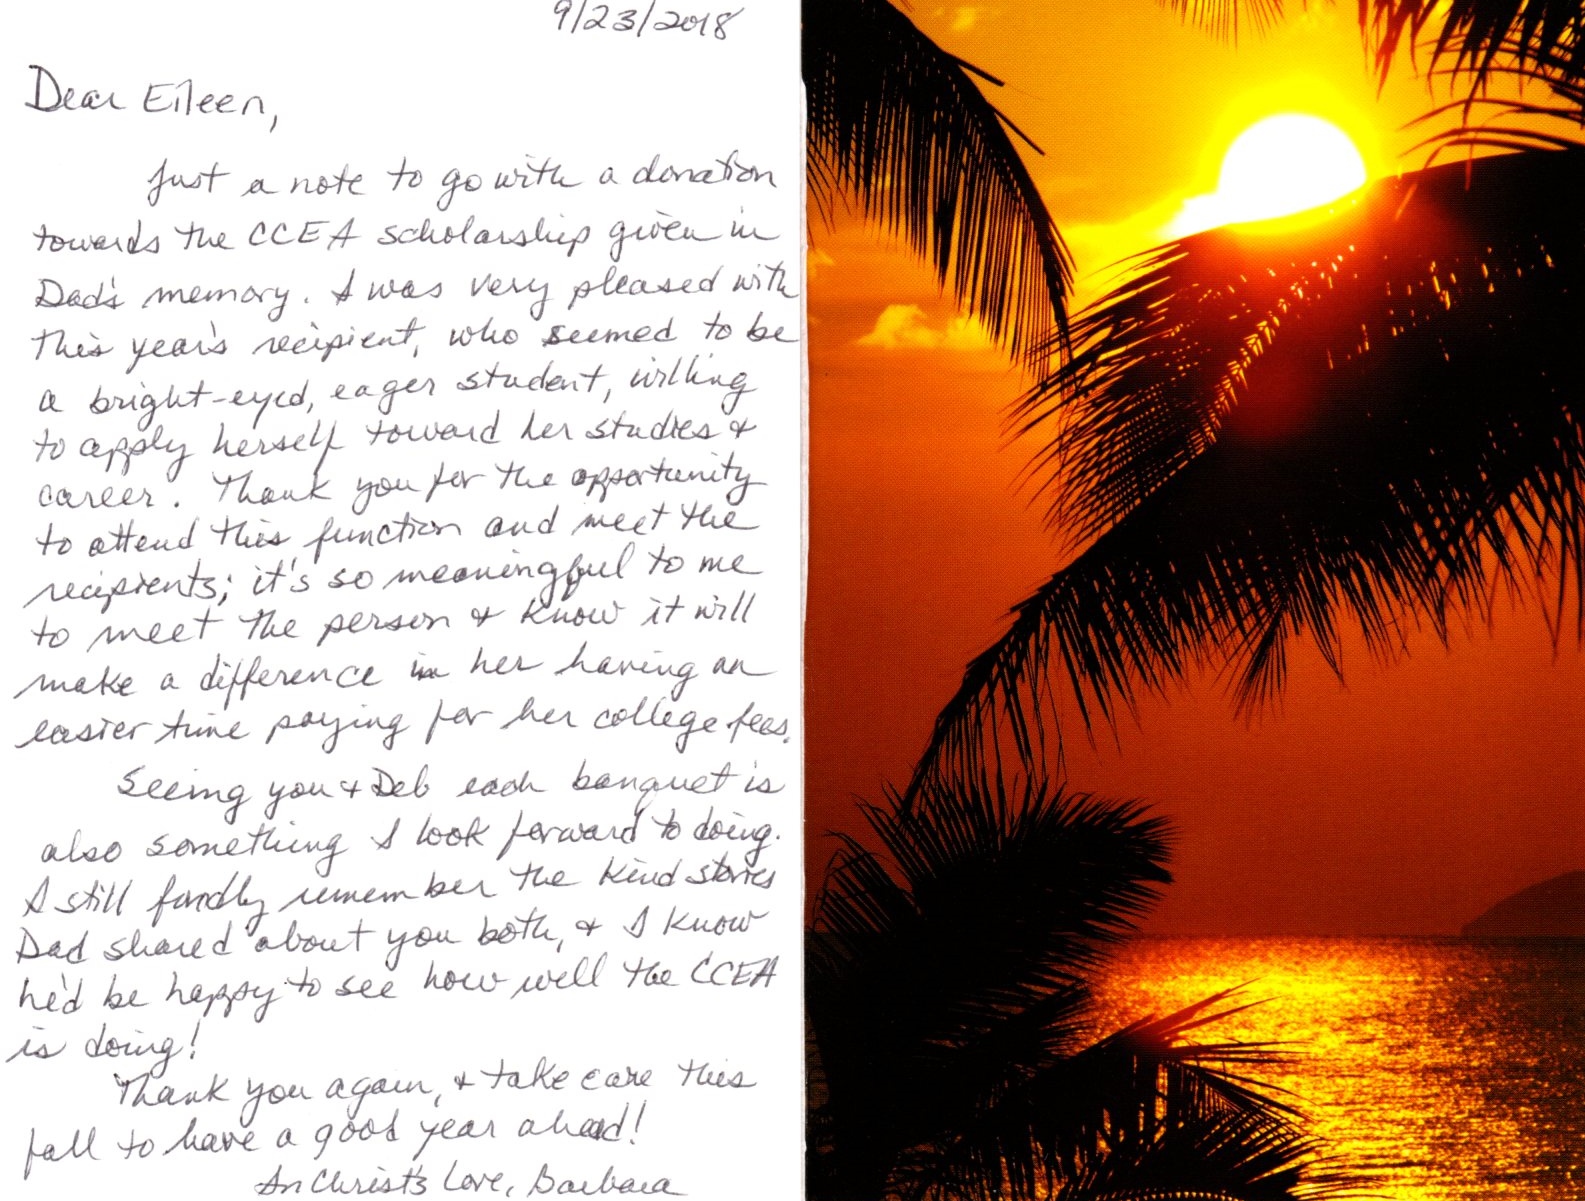 9/23/2018
Dear Eileen,
Just a note to go with a donation
towards the CCEA scholarship given in
Dad's memory. I was very pleased with
this year's recipient, who seemed to be
a bright-eyed, eager student, willing
to apply herself toward her studies &
career. Thank you for the opportunity
to attend this function and meet the
recipients; it's so meaningful to me
to meet the person & know it will
make a difference in her having an
easier time paying for her college fees.
Seeing you & Deb each banquet is
also something I look forward to doing.
I still fondly remember the kind stories
Dad shared about you both, & I know
he'd be happy to see how well the CCEA
is doing!
Thank you again, & take care this
fall to have a good year ahead!
In Christ's Love, Barbara